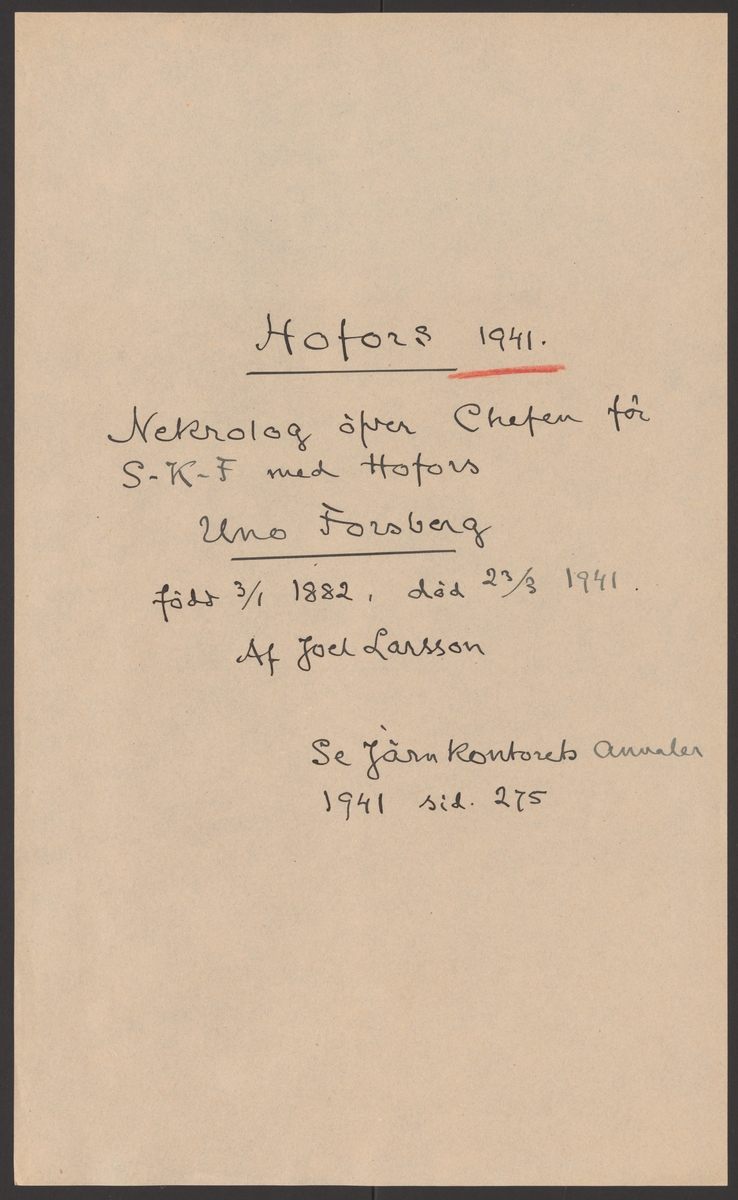 Hofors 1941.
Nekrolog öfver Chefen för
S-K-F med Hofors
Uno Forsberg
född 3/1 1882, död 23/3 1941.
Af Joel Larsson
Se Järnkontorets Annaler
1941 sid. 275